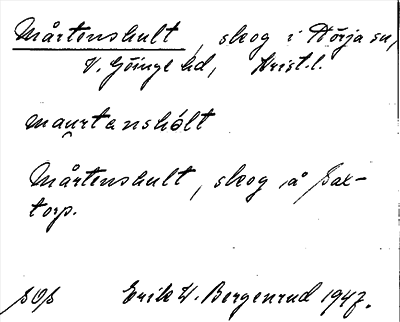 Mårtenshult, skog i Hörja sn,
V. Göinge hd, Krist. l.
maurtanshólt
Mårtenshult, skog å Sax-
torp.
SOS Erik W. Bergenrud 1947.